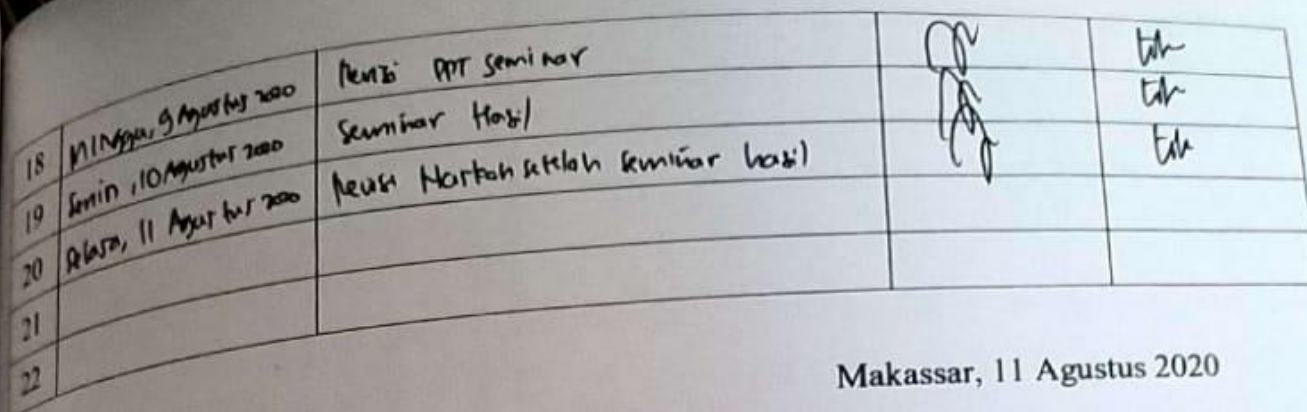 18 Minggu, 9 Agustus 2020 Revisi PPT seminar
19 Senin, 10 Agustus 2020 Seminar Hasil
20 Selasa, 11 Agustus 2020 Revisi Naskah setelah seminar hasil
21
22
Makassar, 11 Agustus 2020